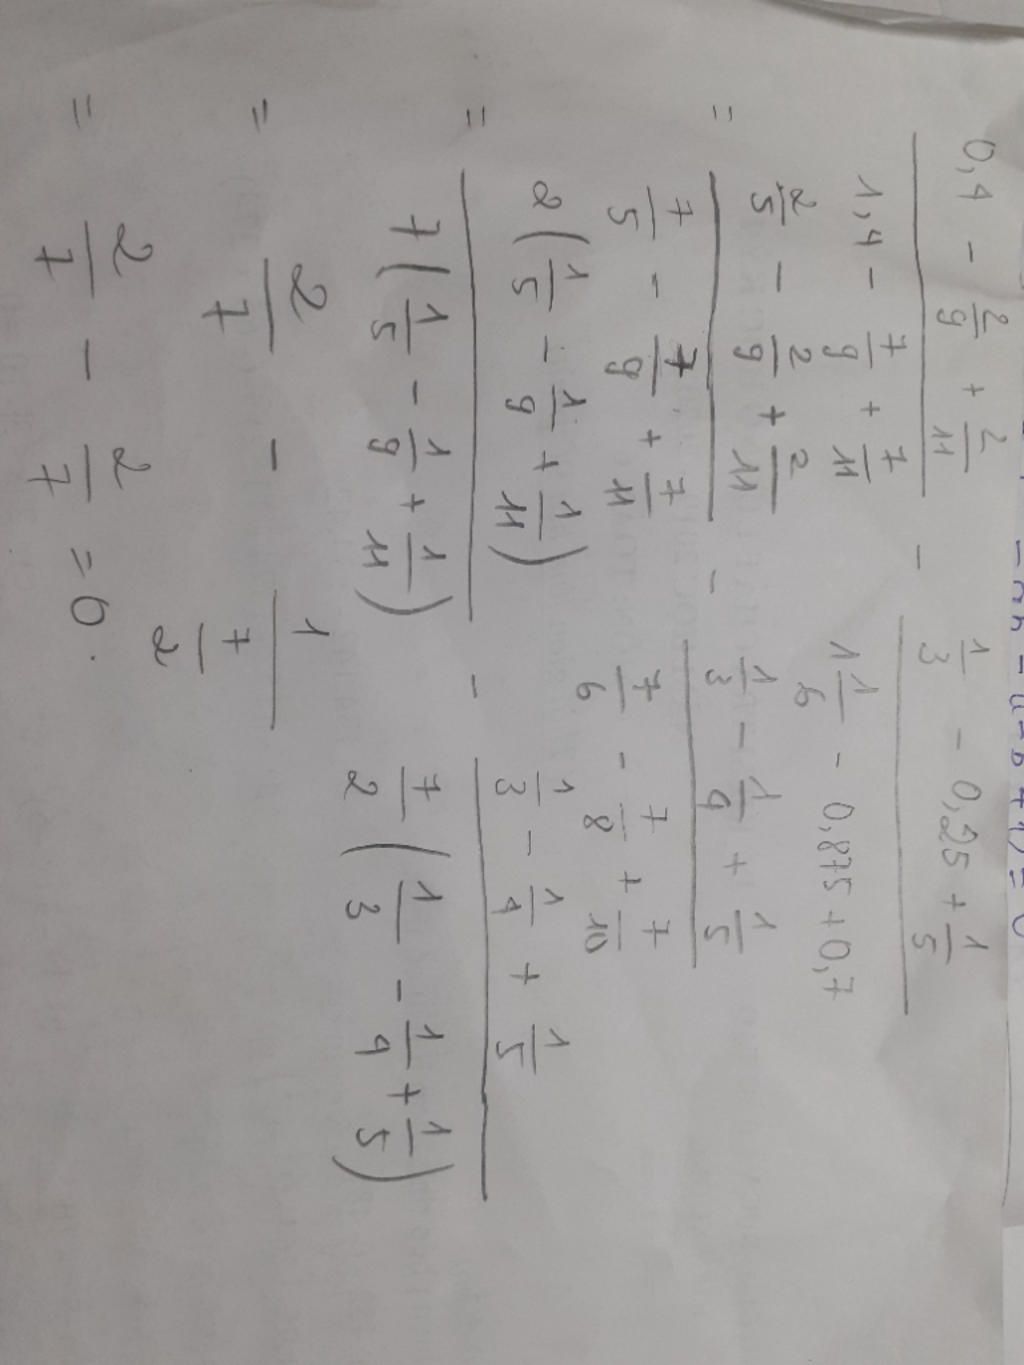 (0,4 - 2/9 + 2/11) / (1,4 - 7/9 + 7/11) - (1/3 - 0,25 + 1/5) / (1 1/6 - 0,875 + 0,7)
= (2/5 - 2/9 + 2/11) / (7/5 - 7/9 + 7/11) - (1/3 - 1/4 + 1/5) / (7/6 - 7/8 + 7/10)
= 2(1/5 - 1/9 + 1/11) / 7(1/5 - 1/9 + 1/11) - (1/3 - 1/4 + 1/5) / 7/2(1/3 - 1/4 + 1/5)
= 2/7 - 1 / 7/2
= 2/7 - 2/7 = 0.